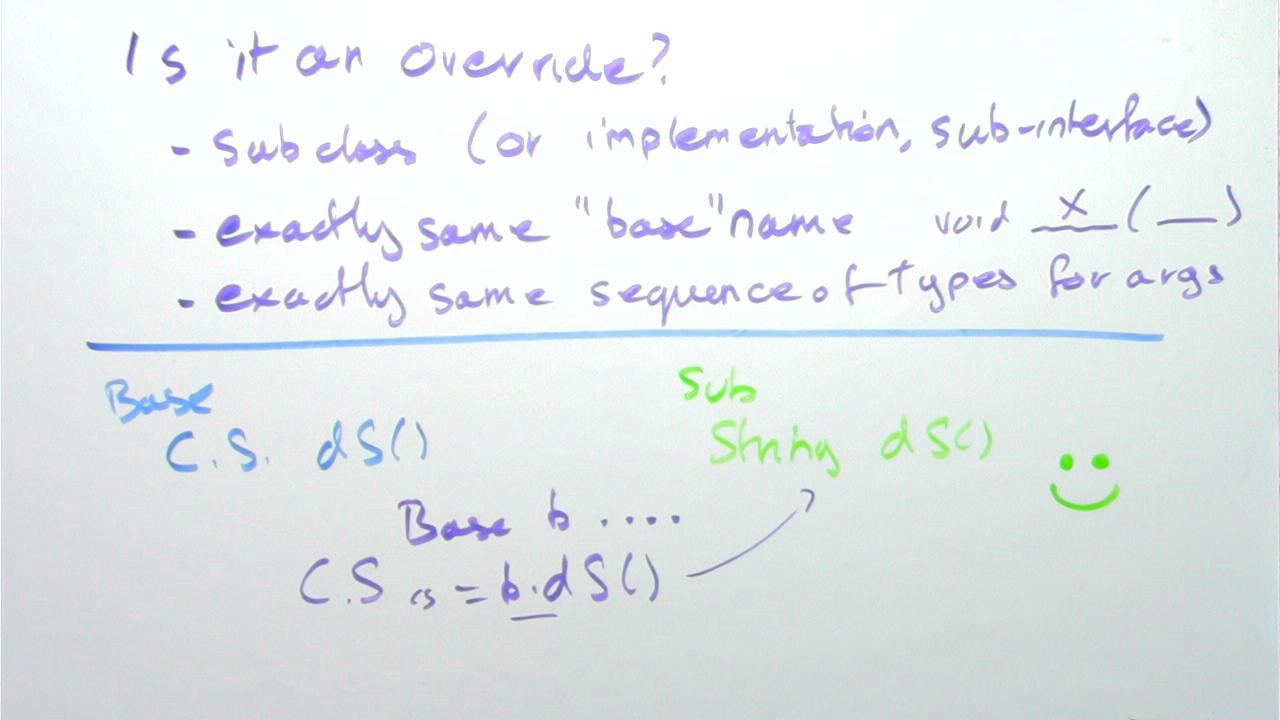 Is it an override?
- subclass (or implementation, sub-interface)
- exactly same "base" name void x ( __ )
- exactly same sequence of types for args
Base
C.S. dS()
Sub
String dS()
Base b ....
C.S cs = b.dS()